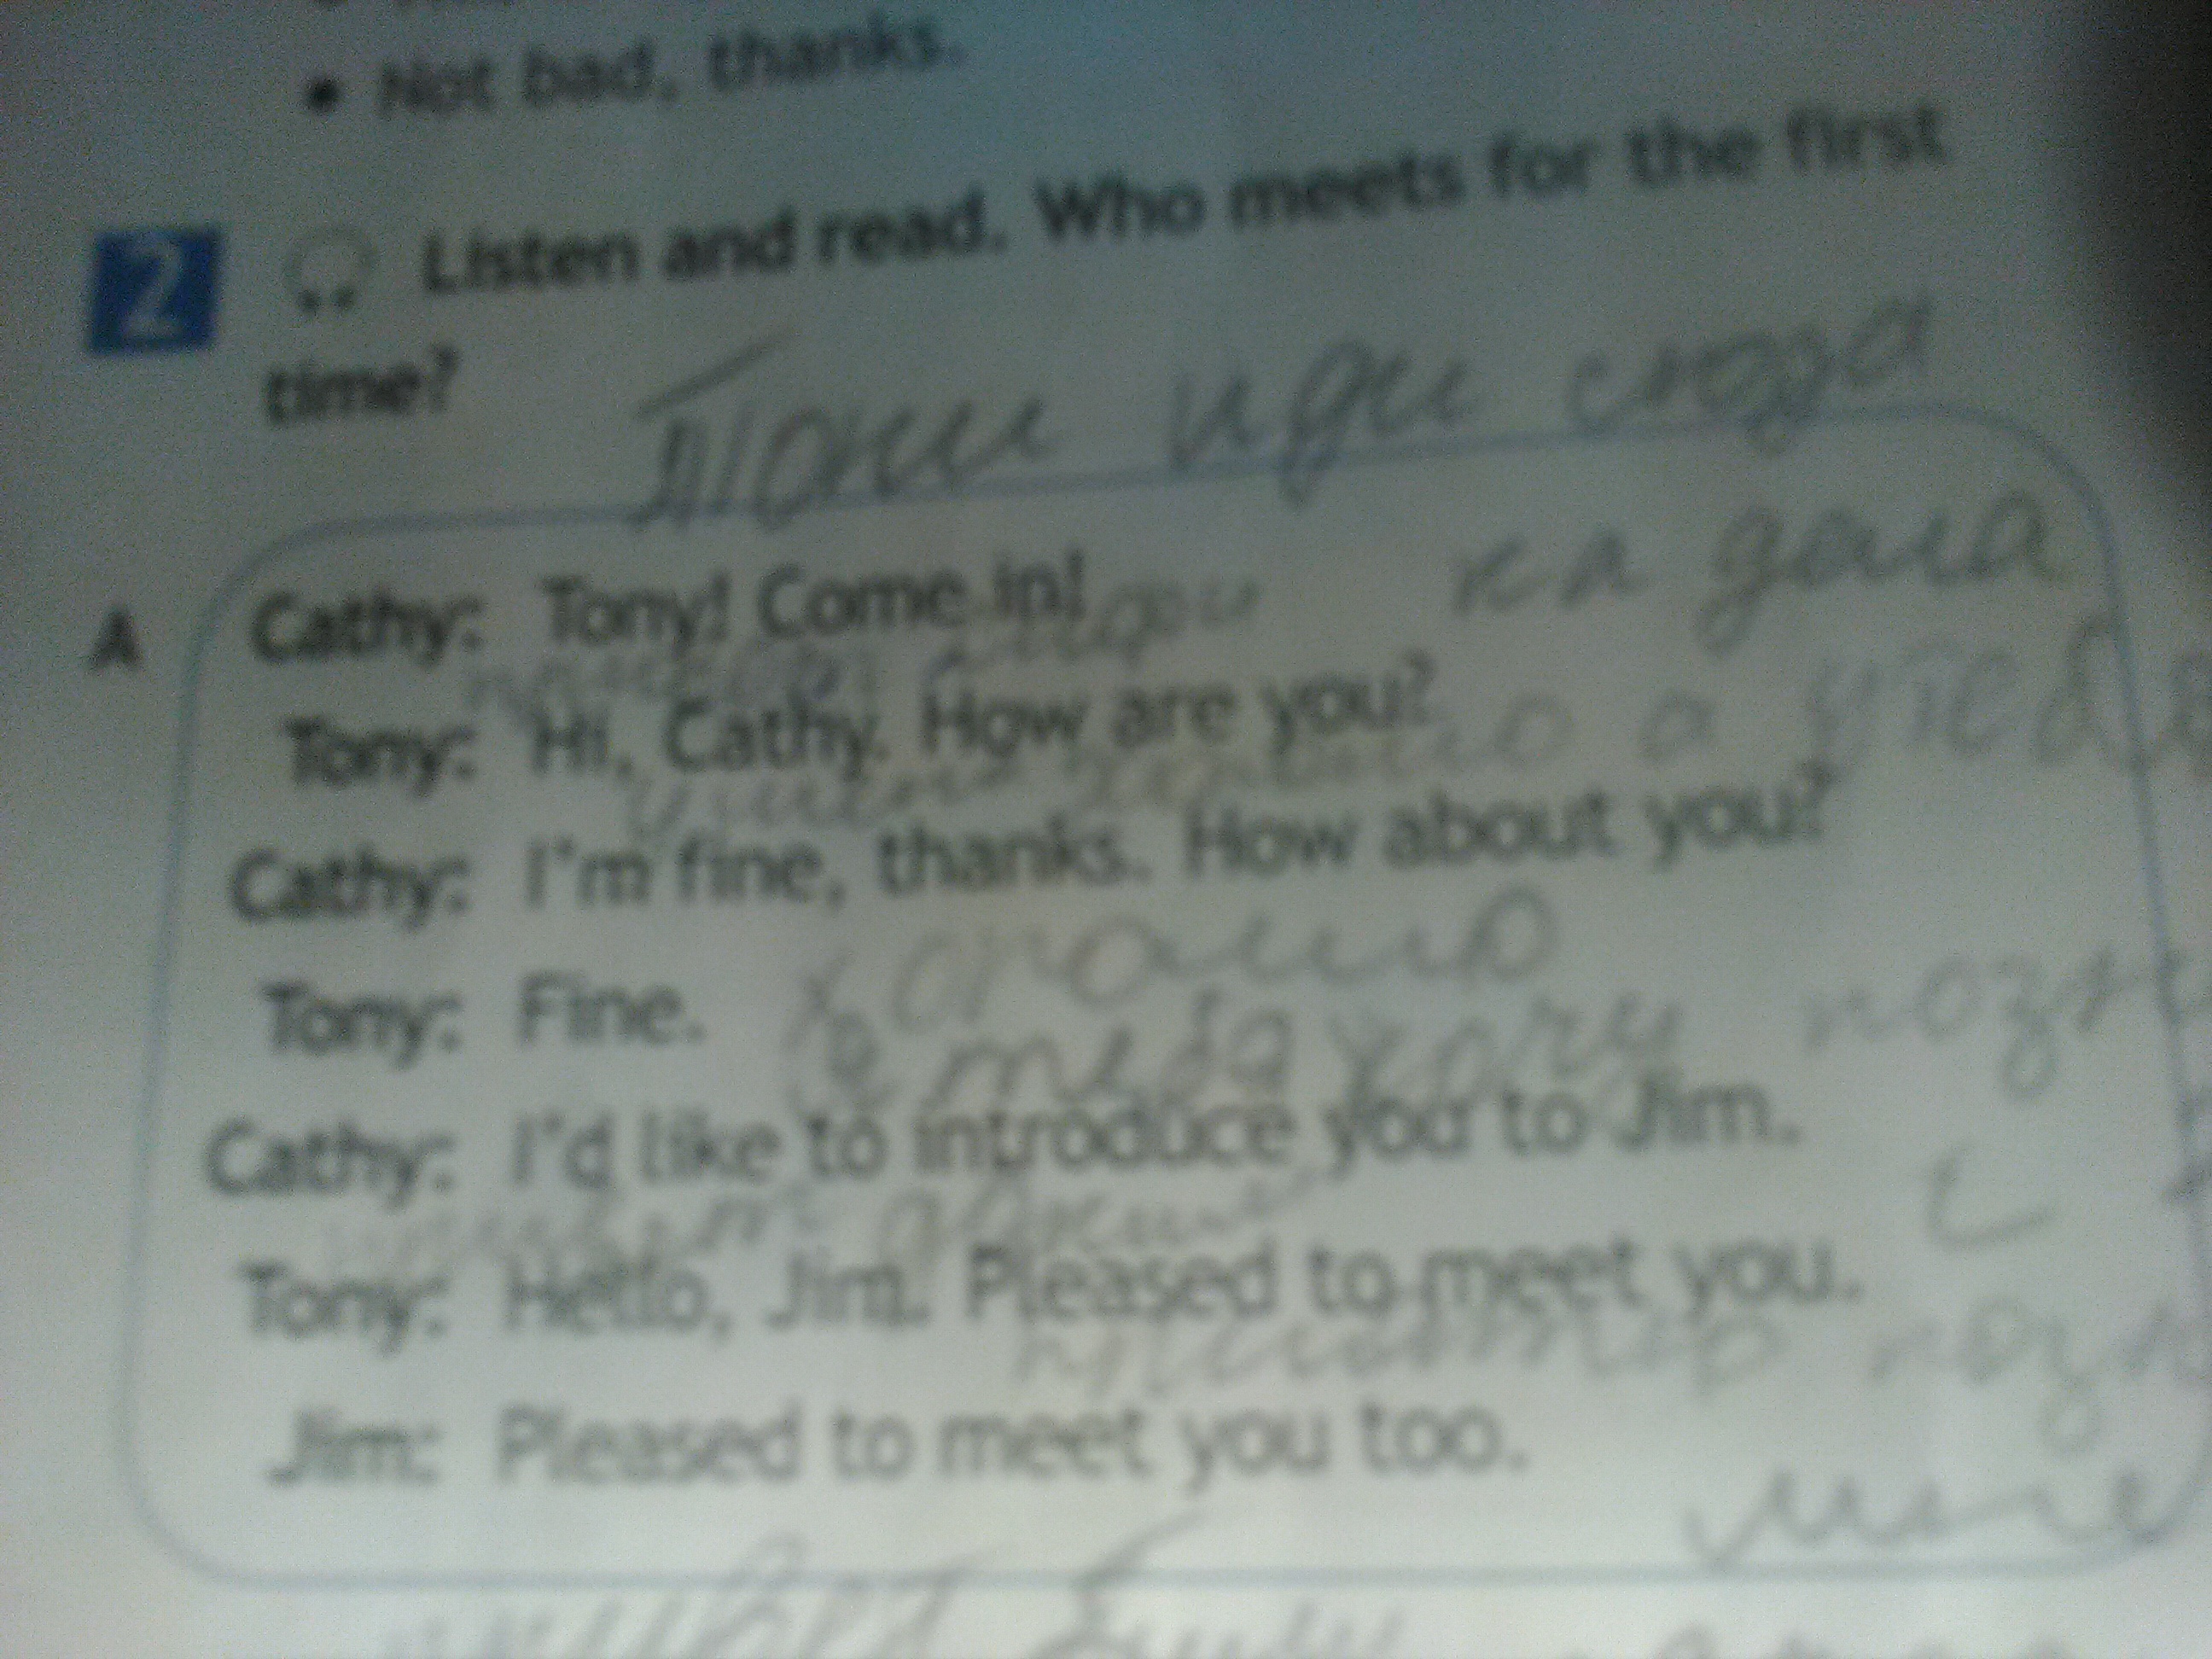 • Not bad, thanks.
2 Listen and read. Who meets for the first
time?
Тони иди сюда
A
Cathy: Tony! Come in!
как дела
Tony: Hi, Cathy. How are you?
а у тебя
Cathy: I'm fine, thanks. How about you?
хорошо
Tony: Fine.
я тебя хочу
Cathy: I'd like to introduce you to Jim.
с
привет
Tony: Hello, Jim. Pleased to meet you.
приятно
Jim: Pleased to meet you too.
мне
привет